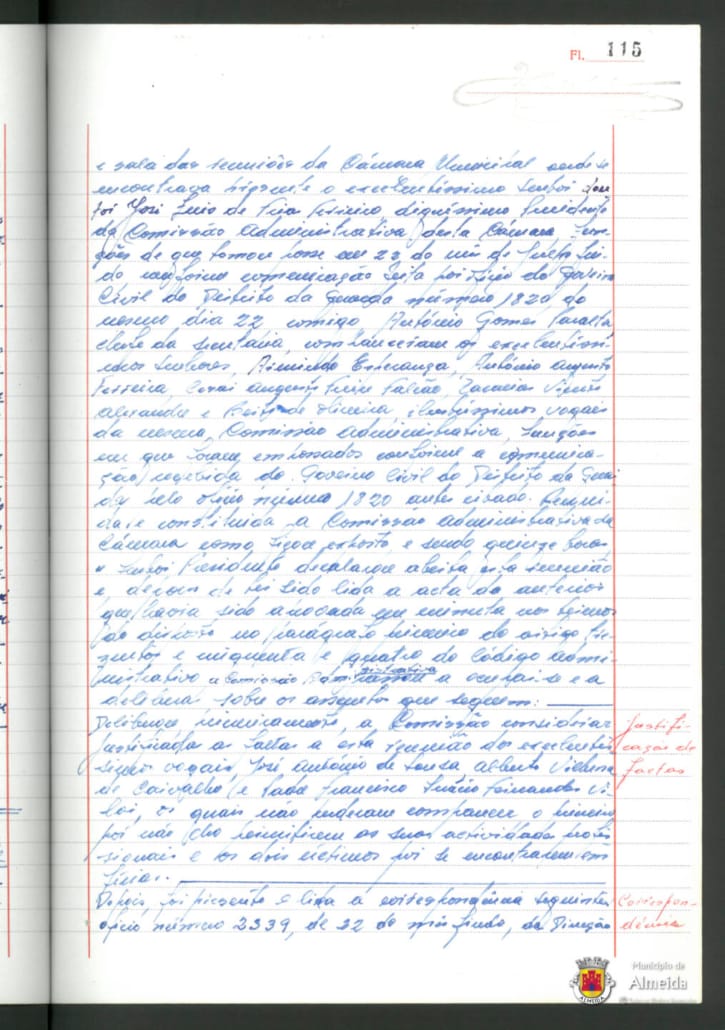 Fl. 115
e sala das reuniões da Câmara Municipal onde se
encontrava presente o excelentíssimo senhor dou
tor José Luis de digníssimo Presidente
da Comissão Administrativa desta Câmara fun-
ções de que tomou posse em 22 do mês de Julho fin-
do conforme comunicação feita por ofício do Governo
Civil do Distrito da Guarda número 1820 do
mesmo dia 22 comigo António Gomes
chefe da secretaria, compareceram os excelentíssi-
mos senhores, Armindo Esperança, António Augusto
Ferreira, Augusto Freire Falcão, Zacarias
Alexandre e de Oliveira, ilustríssimos vogais
da mesma, Comissão Administrativa, funções
em que foram empossados conforme a comunica-
ção recebida do Governo Civil do Distrito da Guar
da pelo ofício número 1820 antes citado. Reuni-
da e constituida a Comissão Administrativa da
Câmara como fica exposto, e sendo quinze horas
o senhor Presidente declarou aberta esta reunião
e depois de ter sido lida a acta da anterior
que havia sido aprovada em minuta nos termos
do disposto no parágrafo primeiro do artigo tre-
zentos e cinquenta e quatro do Código Admi-
nistrativo a Comissão Administrativa passou a ocupar-se e a
deliberar sobre os assuntos que seguem:
Deliberou primeiramente, a Comissão considerar
justificadas as faltas a esta reunião dos excelentis
simos vogais, José António de Sousa, Alberto Vilhena
de Carvalho e Padre Francisco Fernandes Vi-
lar, os quais não puderam comparecer o primeiro
por não lho permitirem as suas actividades profis
sionais e os dois últimos por se encontrarem em
férias.
Justifi-
cação de
faltas
Depois, foi presente e lida a correspondência seguinte:
ofício número 2339, de 22 do mês findo, da Direcção
Correspon-
dência
Município de
Almeida
ALMEIDA